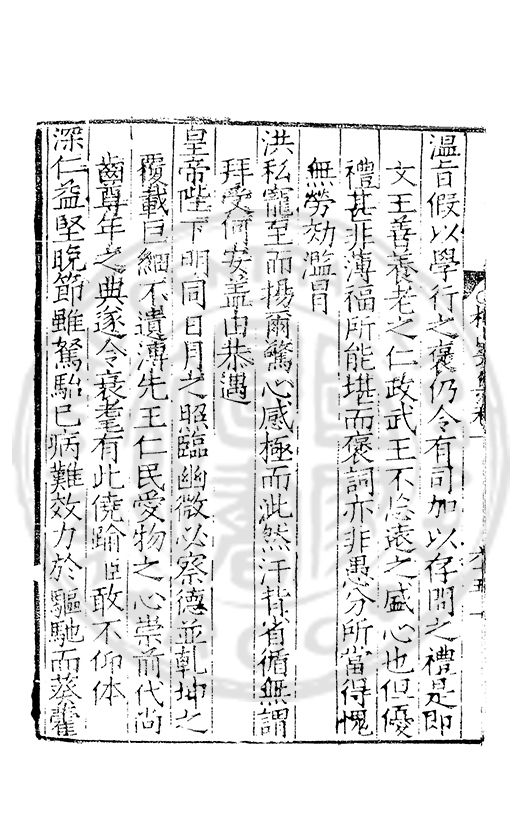 溫旨假以學行之褒仍令有司加以存問之禮是即
文王善養老之仁政武王不忘遠之盛心也但優
禮甚非薄福所能堪而褒詞亦非愚分所當得愧
無勞効濫冒
洪私寵至而擾爾驚心感極而泚然汗背省循無謂
拜受何安盖由恭遇
皇帝陛下明同日月之照臨幽微必察德並乹坤之
覆載巨細不遺溥先王仁民愛物之心崇前代尚
齒尊年之典遂令衰耄有此僥踰臣敢不仰体
深仁益堅晚節雖駑駘已病難效力於驅馳而葵藿